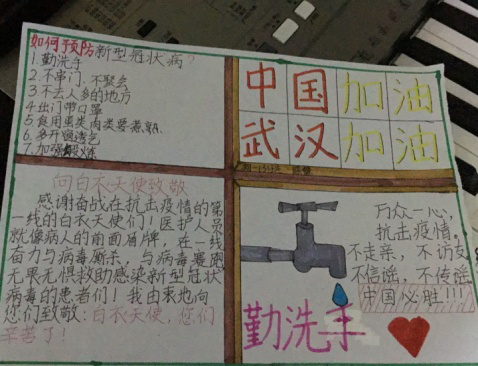 如何预防新型冠状病?
1.勤洗手
2.不串门、不聚会
3不去人多的地方
4出门带口罩
5食用蛋类肉类要煮熟
6多开窗透气
7.加强锻炼
中国加油
武汉加油
向白衣天使致敬
感谢奋战在抗击疫情的第
一线的白衣天使们!医护人员
就像病人的前面盾牌,在一线
奋力与病毒厮杀,与病毒赛跑
无畏无惧救助感染新型冠状
病毒的患者们!我由衷地向
您们致敬:白衣天使,您们
辛苦了!
万众一心,
抗击疫情。
不走亲,不访友
不信谣,不传谣
中国必胜!!!
勤洗手